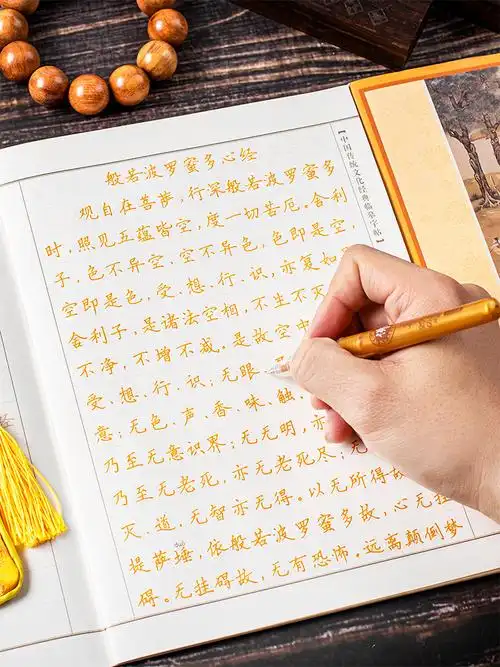 般若波罗蜜多心经
观自在菩萨,行深般若波罗蜜多
时,照见五蕴皆空,度一切苦厄。舍利
子,色不异空,空不异色,色即是空,
空即是色,受、想、行、识,亦复如
舍利子,是诸法空相,不生不灭
不净,不增不减,是故空中
受、想、行、识;无眼
意;无色、声、香、味、触、
乃至无意识界;无无明,亦
乃至无老死,亦无老死尽;无
灭、道,无智亦无得。以无所得故
提萨埵,依般若波罗蜜多故,心无挂
碍。无挂碍故,无有恐怖。远离颠倒梦
【中国传统文化经典临摹字帖】